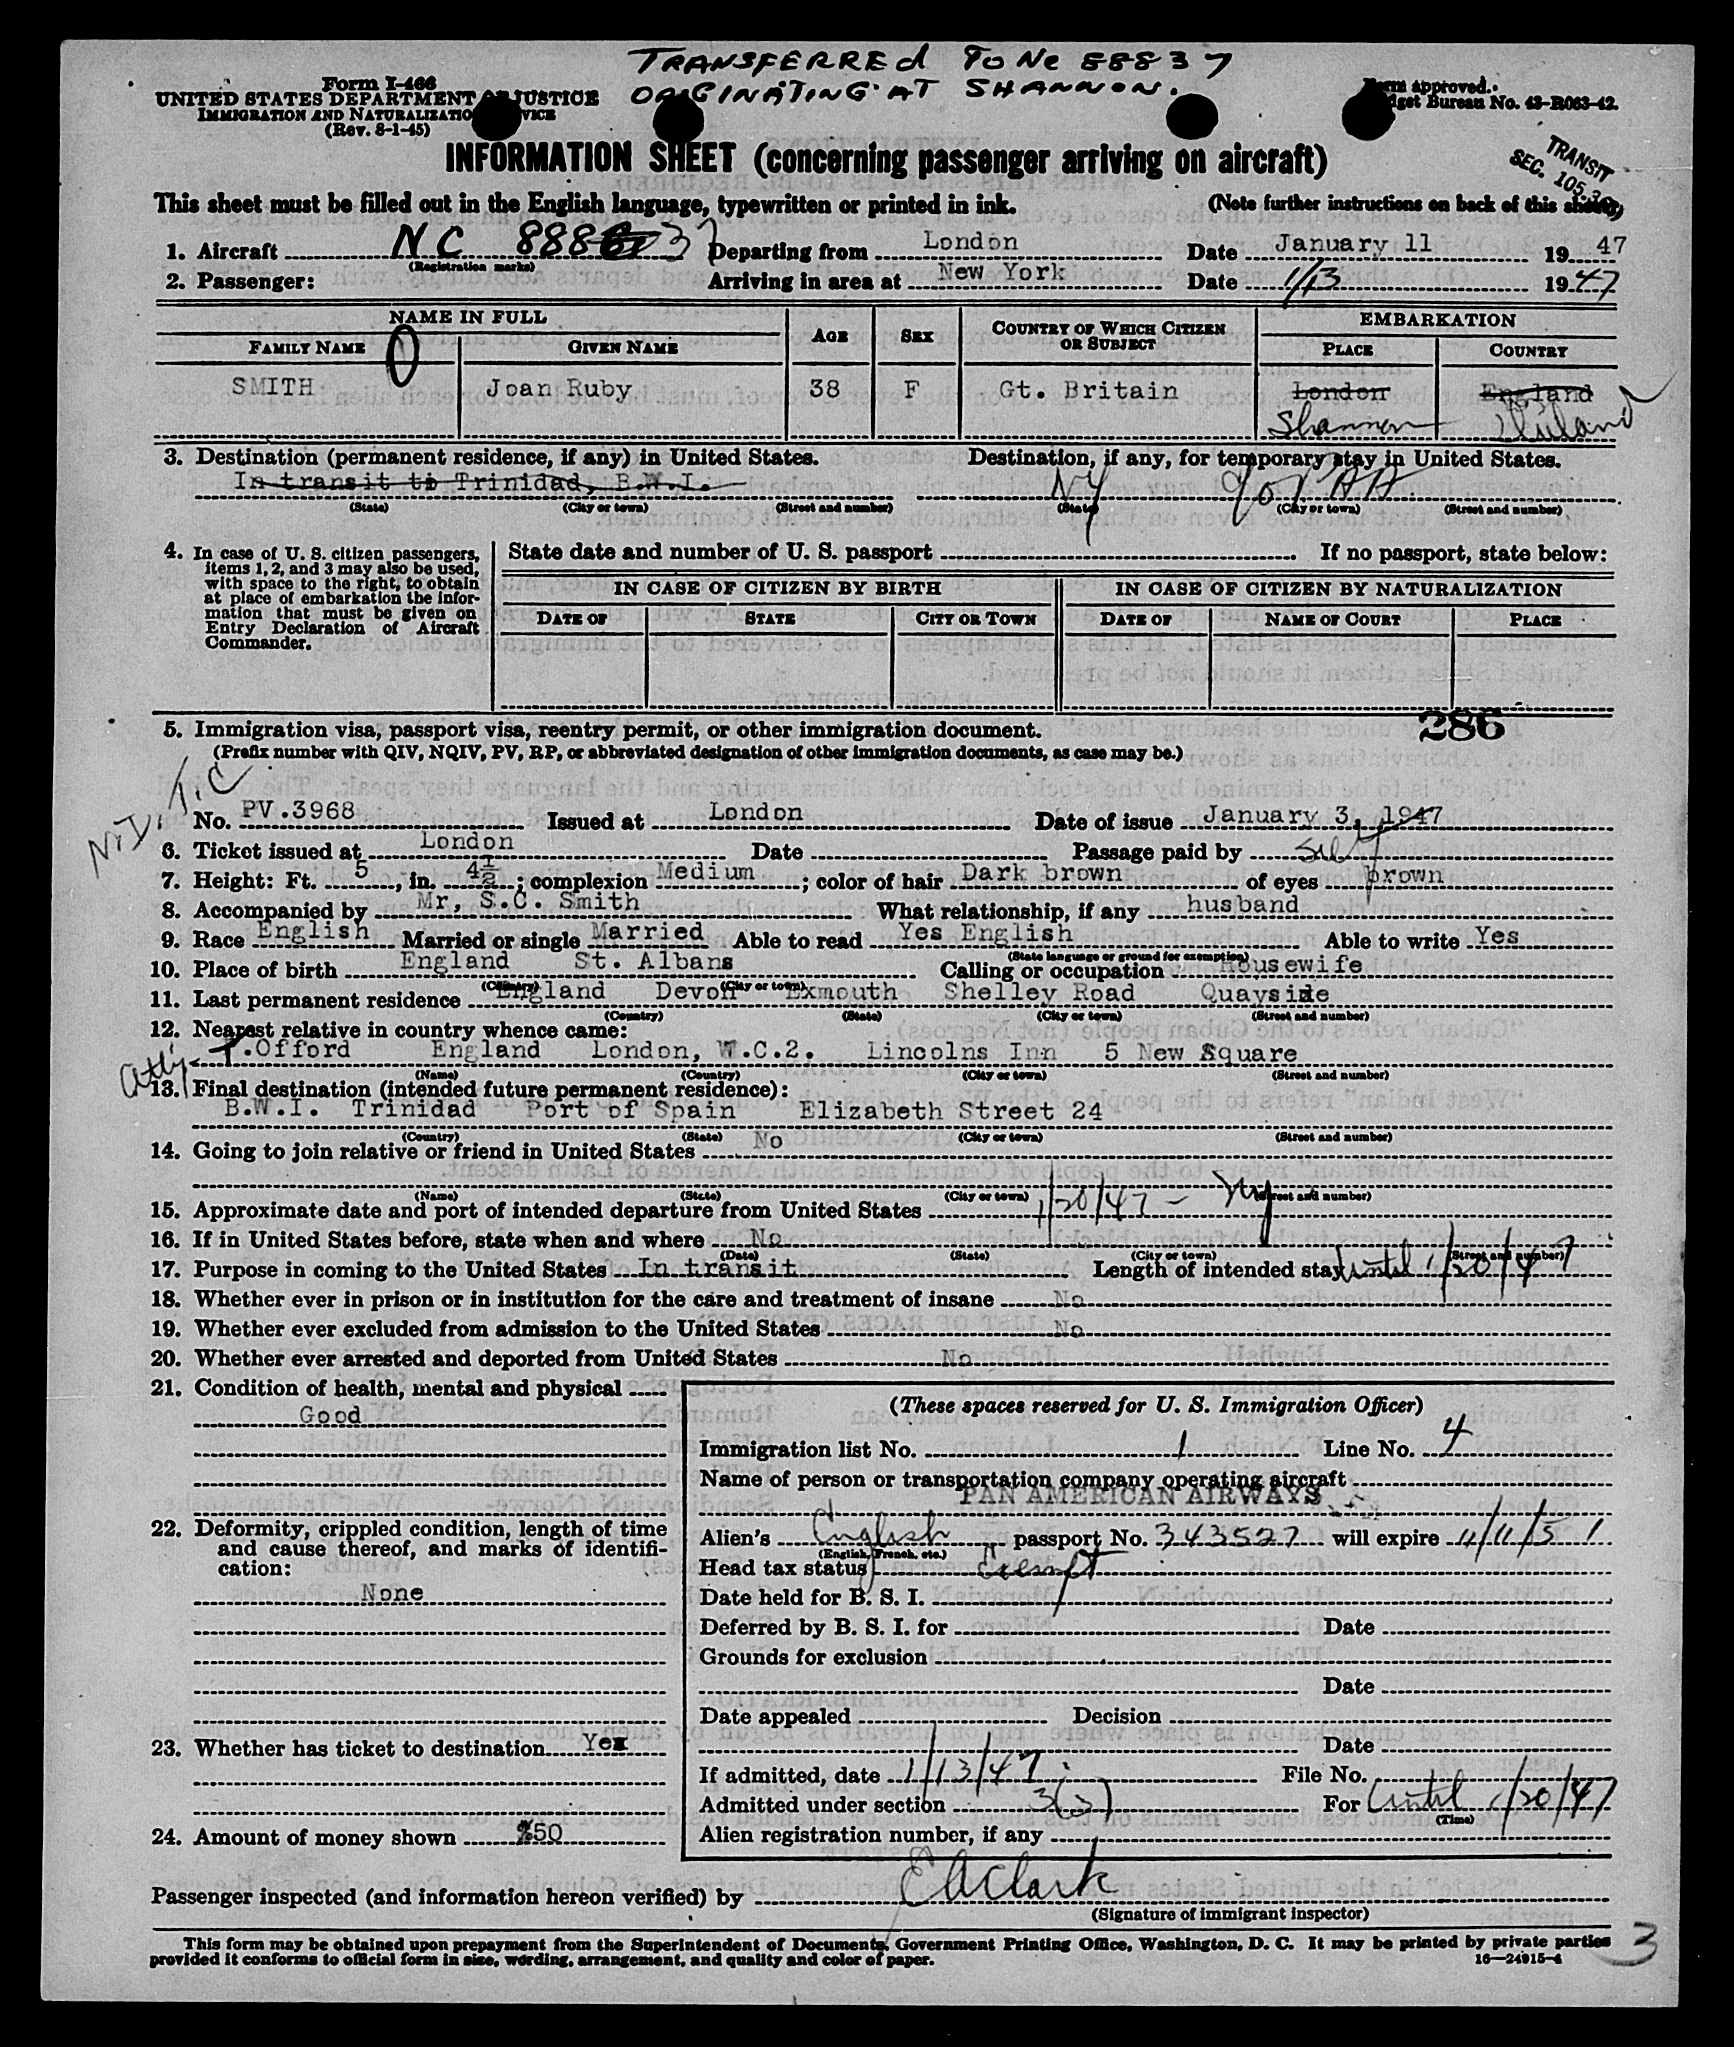 TRANSFERRED TO NC 88837
ORIGINATING AT SHANNON.
Form I-466
UNITED STATES DEPARTMENT OF JUSTICE
IMMIGRATION AND NATURALIZATION SERVICE
(Rev. 8-1-45)
Form approved.
Budget Bureau No. 43-R063-42.
INFORMATION SHEET (concerning passenger arriving on aircraft)
TRANSIT
SEC. 105.3
This sheet must be filled out in the English language, typewritten or printed in ink. (Note further instructions on back of this sheet)
1. Aircraft NC 88837 Departing from London Date January 11 1947
(Registration marks)
2. Passenger: Arriving in area at New York Date 1/13 1947
NAME IN FULL AGE SEX COUNTRY OF WHICH CITIZEN OR SUBJECT EMBARKATION
FAMILY NAME GIVEN NAME PLACE COUNTRY
SMITH Joan Ruby 38 F Gt. Britain London England
Shannon Ireland
3. Destination (permanent residence, if any) in United States. Destination, if any, for temporary stay in United States.
In transit to Trinidad, B.W.I. NY
(State) (City or town) (Street and number) (State) (City or town) (Street and number)
4. In case of U. S. citizen passengers, items 1, 2, and 3 may also be used, with space to the right, to obtain at place of embarkation the information that must be given on Entry Declaration of Aircraft Commander.
State date and number of U. S. passport If no passport, state below:
IN CASE OF CITIZEN BY BIRTH IN CASE OF CITIZEN BY NATURALIZATION
DATE OF STATE CITY OR TOWN DATE OF NAME OF COURT PLACE
286
5. Immigration visa, passport visa, reentry permit, or other immigration document.
(Prefix number with QIV, NQIV, PV, RP, or abbreviated designation of other immigration documents, as case may be.)
No. PV.3968 Issued at London Date of issue January 3, 1947
6. Ticket issued at London Date Passage paid by self
7. Height: Ft. 5, in. 4½; complexion Medium; color of hair Dark brown of eyes brown
8. Accompanied by Mr, S.C. Smith What relationship, if any husband
9. Race English Married or single Married Able to read Yes English Able to write Yes
(State language or ground for exemption)
10. Place of birth England St. Albans Calling or occupation Housewife
(Country) (City or town)
11. Last permanent residence England Devon Exmouth Shelley Road Quayside
(Country) (State) (City or town) (Street and number)
12. Nearest relative in country whence came:
Atty T.Offord England London, W.C.2. Lincolns Inn 5 New Square
(Name) (Country) (City or town) (Street and number)
13. Final destination (intended future permanent residence):
B.W.I. Trinidad Port of Spain Elizabeth Street 24
(Country) (State) (City or town) (Street and number)
14. Going to join relative or friend in United States No
(Name) (State) (City or town) (Street and number)
15. Approximate date and port of intended departure from United States 1/20/47 - NY
16. If in United States before, state when and where No
(Date) (State) (City or town) (Street and number)
17. Purpose in coming to the United States In transit Length of intended stay until 1/20/47
18. Whether ever in prison or in institution for the care and treatment of insane No
19. Whether ever excluded from admission to the United States No
20. Whether ever arrested and deported from United States No
21. Condition of health, mental and physical
Good
22. Deformity, crippled condition, length of time and cause thereof, and marks of identification:
None
23. Whether has ticket to destination Yes
24. Amount of money shown $50
(These spaces reserved for U. S. Immigration Officer)
Immigration list No. 1 Line No. 4
Name of person or transportation company operating aircraft
PAN AMERICAN AIRWAYS
Alien's English passport No. 343527 will expire 11/11/51
(English, French, etc.)
Head tax status Exempt
Date held for B. S. I.
Deferred by B. S. I. for Date
Grounds for exclusion
Date
Date appealed Decision
Date
If admitted, date 1/13/47 File No.
Admitted under section 3(3) For Until 1/20/47
(Time)
Alien registration number, if any
Passenger inspected (and information hereon verified) by EAClark
(Signature of immigrant inspector)
This form may be obtained upon prepayment from the Superintendent of Documents, Government Printing Office, Washington, D. C. It may be printed by private parties
provided it conforms to official form in size, wording, arrangement, and quality and color of paper. 16—24915-4
3